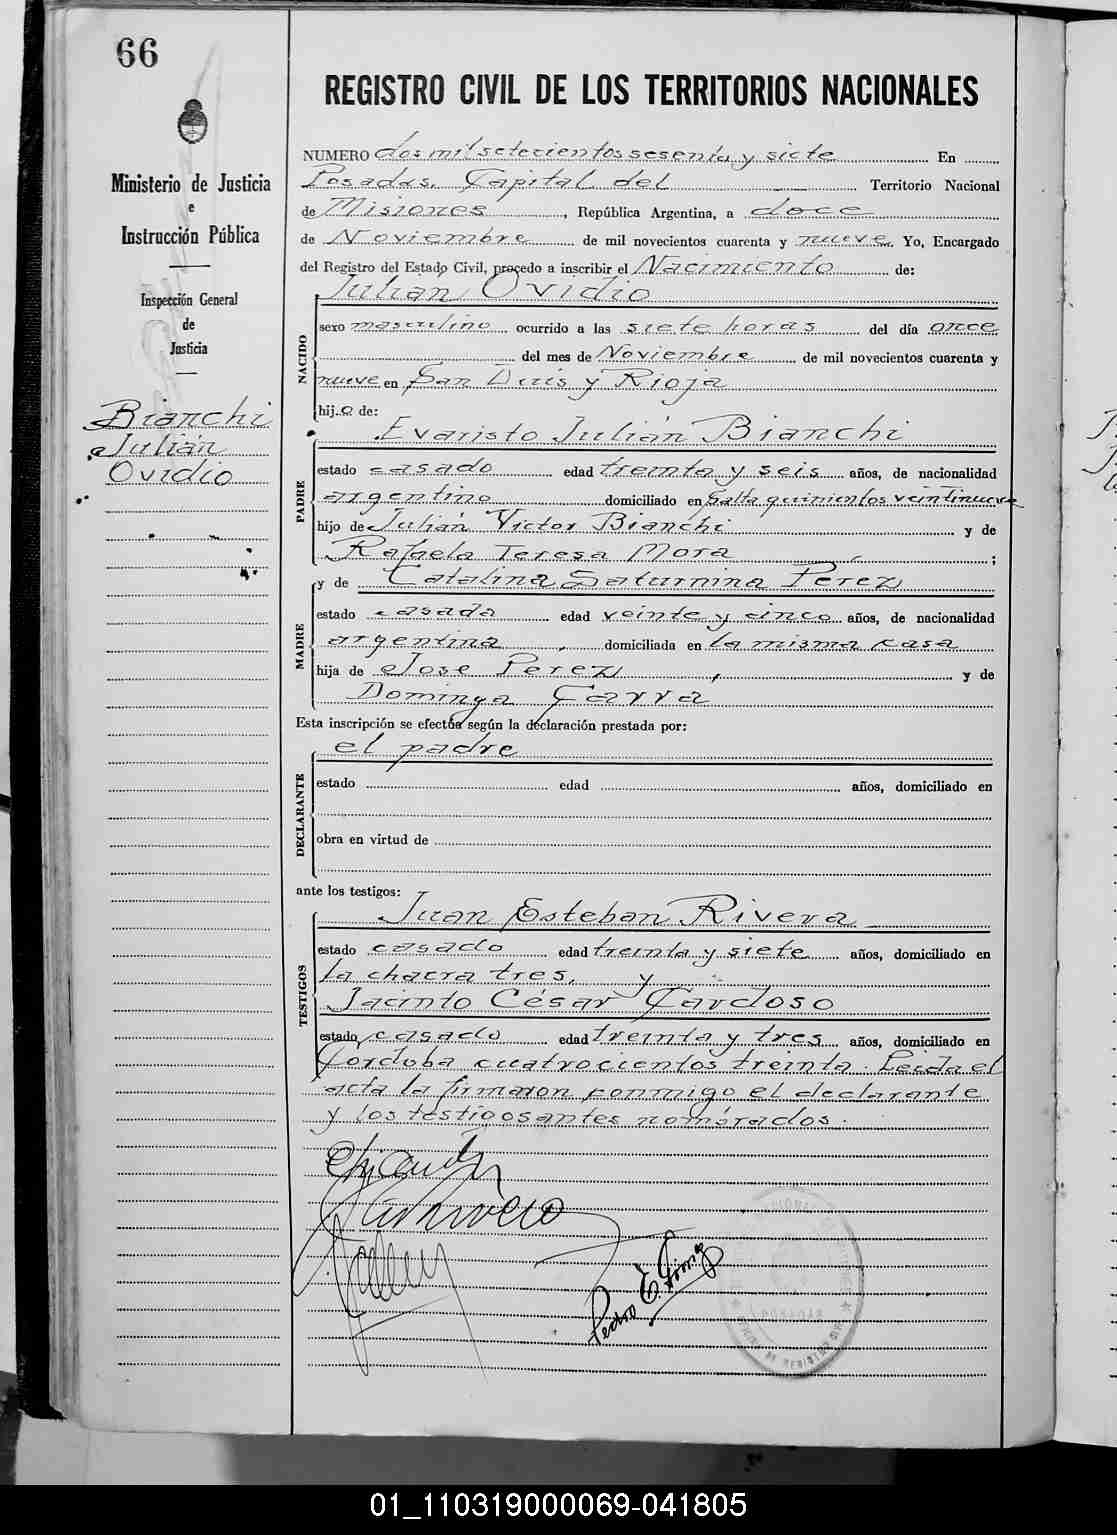 66
Ministerio de Justicia
e
Instrucción Pública
Inspección General
de
Justicia
Bianchi
Julián
Ovidio
REGISTRO CIVIL DE LOS TERRITORIOS NACIONALES
NUMERO dos mil setecientos sesenta y siete En
Posadas, Capital del Territorio Nacional
de Misiones, República Argentina, a doce
de Noviembre de mil novecientos cuarenta y nueve. Yo, Encargado
del Registro del Estado Civil, procedo a inscribir el Nacimiento de:
NACIDO
Julian Ovidio
sexo masculino ocurrido a las siete horas del día once
del mes de Noviembre de mil novecientos cuarenta y
nueve en San Luis y Rioja
hij.o de:
PADRE
Evaristo Julián Bianchi
estado casado edad treinta y seis años, de nacionalidad
argentino domiciliado en Salta quinientos veintinueve
hijo de Julián Victor Bianchi y de
Rafaela Teresa Mora ;
MADRE
y de Catalina Saturnina Pérez
estado casada edad veinte y cinco años, de nacionalidad
argentina, domiciliada en la misma casa
hija de Jose Perez, y de
Dominga Carra
Esta inscripción se efectúa según la declaración prestada por:
DECLARANTE
el padre
estado edad años, domiciliado en
obra en virtud de
ante los testigos:
TESTIGOS
Juan Esteban Rivera
estado casado edad treinta y siete años, domiciliado en
la chacra tres, y
Jacinto César Cardoso
estado casado edad treinta y tres años, domiciliado en
Cordoba cuatrocientos treinta. Leida el
acta la firmaron conmigo el declarante
y los testigos antes nombrados.
Pedro E.
01_110319000069-041805